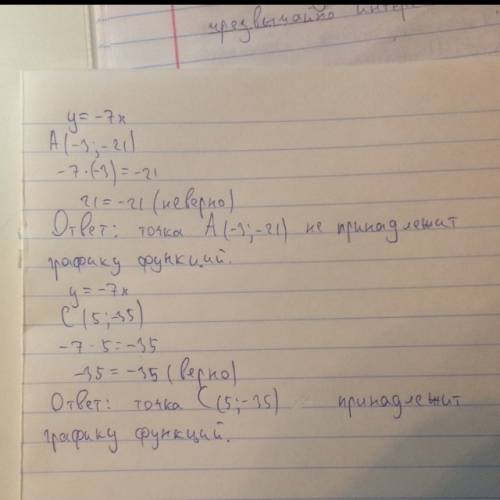 чрезвычайно интере
y = -7x
A(-3; -21)
-7·(-3) = -21
21 = -21 (неверно)
Ответ: точка A(-3; -21) не принадлежит
графику функций.
y = -7x
C(5; -35)
-7·5 = -35
-35 = -35 (верно)
Ответ: точка C(5; -35) принадлежит
графику функций.